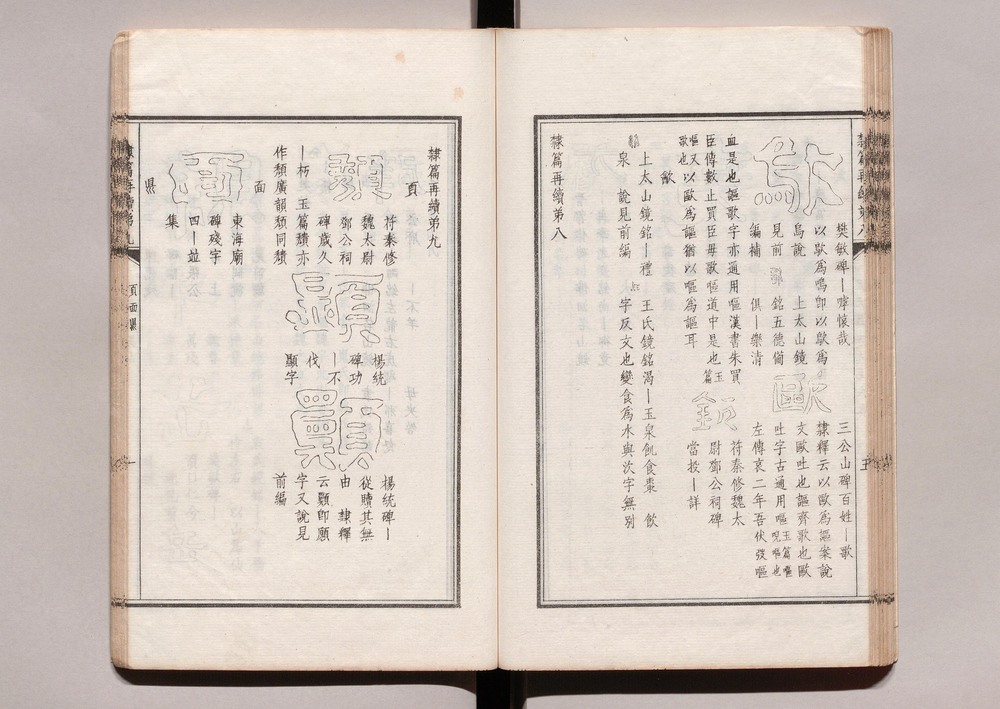 樊敏碑丨嘑懷哉
以歍爲嗚卽以歍爲
烏說 上太山鏡
見前 銘五德備
編補 俱丨樂清
歐
三公山碑百姓丨歌
隸釋云以歐爲謳案說
文歐吐也謳齊歌也歐
吐字古通用嘔玉篇嘔
咒嘔也
左傳哀二年吾伏弢嘔
血是也謳歌字亦通用嘔漢書朱買
臣傳數止買臣毋歌嘔道中是也玉篇
嘔又以歐爲謳猶以嘔爲謳耳
歌也
符秦修魏太
尉鄧公祠碑
當投丨詳
飲
上太山鏡銘丨禮 王氏鏡銘渴丨玉泉飢食棗 飲
泉 說見前編 字反文也變食爲水與次字無別
隸篇再續第八
隸篇再續第九
頁
類
符秦修
魏太尉
鄧公祠
碑歲久
丨朽 玉篇纇亦
作纇廣韻纇同纇
顯
楊統
碑功
丨不
伐
顯字
顯
楊統碑丨
從贖其無
由 隸釋
云顯卽願
字又說見
前編
面
面
東海廟
碑殘字
四丨並
集
頁面